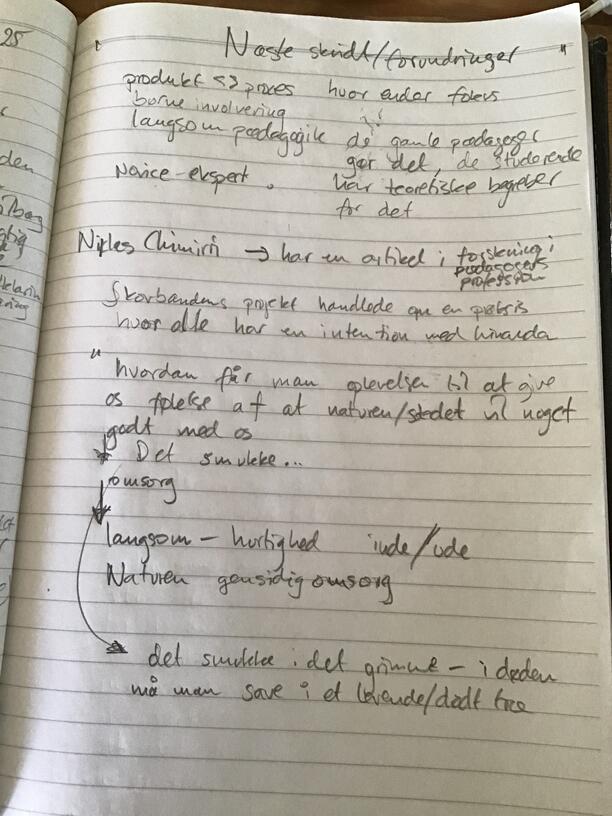 25
" Næste skridt/forundringer "
produkt <=> proces hvor ender fokus
børne involvering
langsom pædagogik de gamle pædagoger
gør det, de studerende
Novice - ekspert. har teoretiske begreber
for det
Niklas Chimirri → har en artikel i forskning i
pædagogers
profession
Skovbandens projekt handlede om en præmis
hvor alle har en intention med hinanden
" hvordan får man oplevelsen til at give
os følelse af at naturen/stedet vil noget
godt med os
Det smukke...
omsorg
langsom - hurtighed inde/ude
Naturen gensidig omsorg
det smukke i det grimme - i døden
må man save i et levende/dødt træ